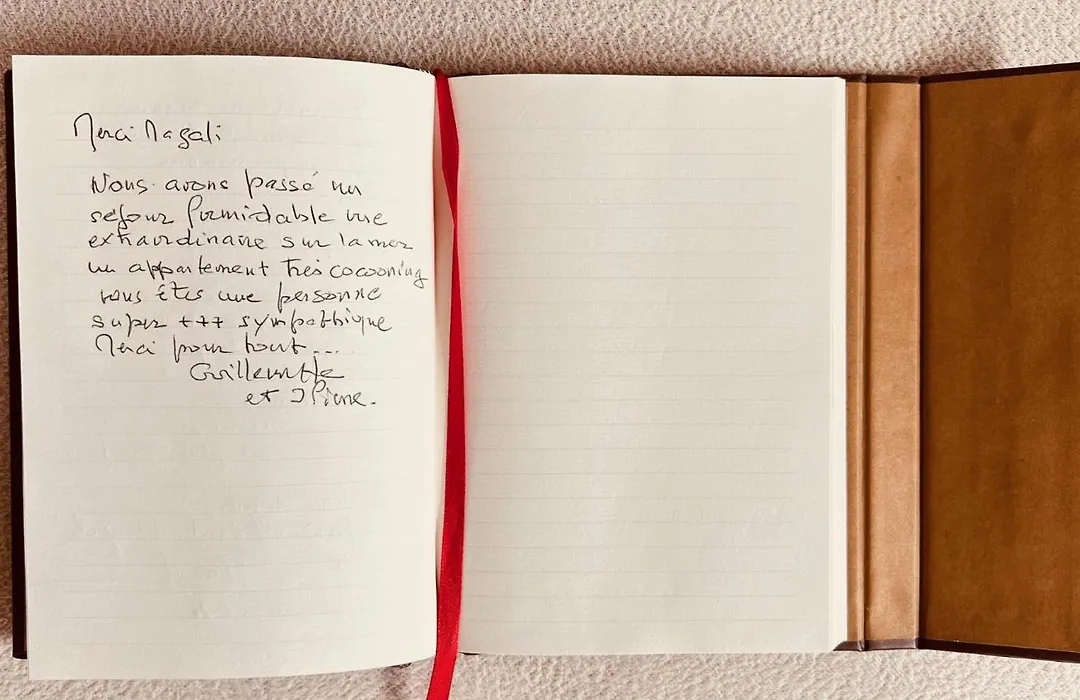 Merci Magali
Nous avons passé un
séjour formidable vue
extraordinaire sur la mer
un appartement très cocooning
vous êtes une personne
super +++ sympathique
Merci pour tout...
Guillemette
et JPierre.